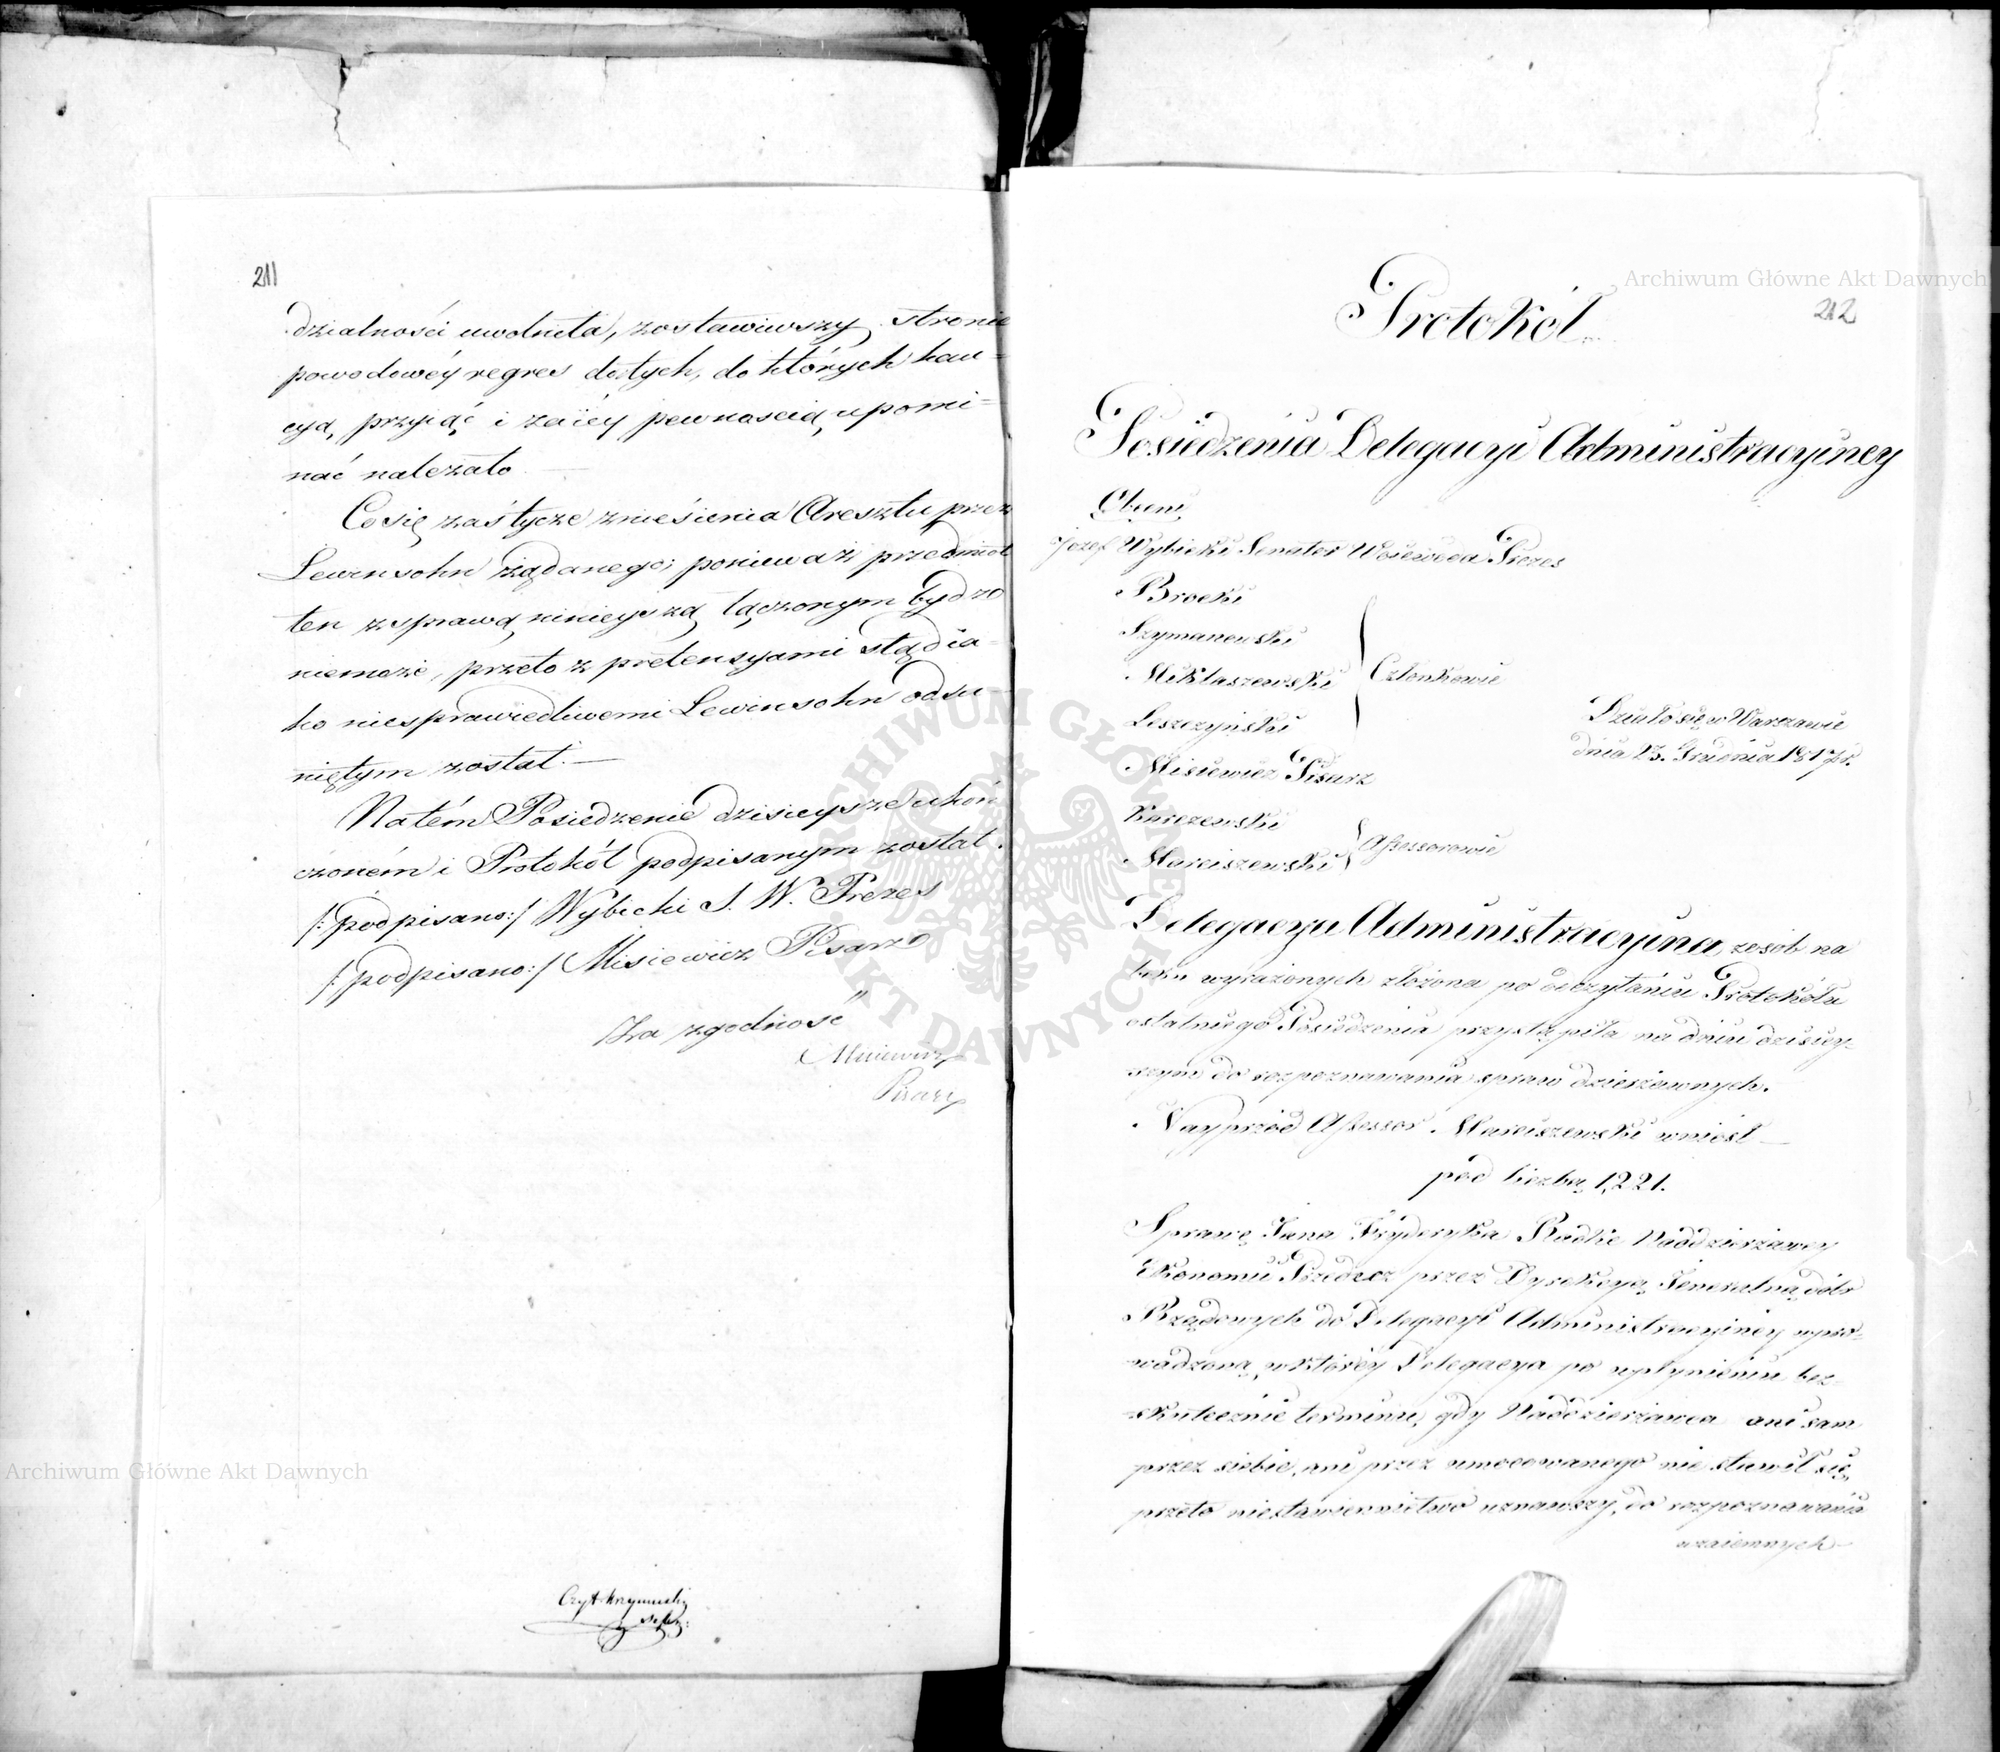 211
dzialności uwolniła, zostawiwszy stronie
powodowéy regres do tych, do których kau=
cyą przyiąć i zaiéy pewnością upomi=
nać należało.
Co się zaś tycze zniesienia Aresztu przez
Lewinsohn żądanego; ponieważ przedmiot
ten z sprawą ninieyszą łączonym bydź
niemoże, przeto z pretensyami stąd ia-
ko niesprawiedliwemi Lewinsohn odsu-
niętym został.—
Natém Posiedzenie dzisieysze ukoń
czoném i Protokół podpisanym został.
/:podpisano:/ Wybicki S. W. Prezes
/:podpisano:/ Misiewicz Pisarz
Za zgodność
Misiewicz
Pisarz
Czyt. Krzymuski
212
Protokół
Posiedzenia Delegacyi Administracyiney
Obecni
Józef Wybicki Senator Woiewoda Prezes
Brocki
Szymanowski
Miklaszewski
Członkowie
Leszczyński
Działo się w Warszawie
dnia 23. Grudnia 1817 r.
Misiewicz Pisarz
Karczewski
Assessorowie
Marciszewski
Delegacya Administracyina z osób na
boku wyrażonych złożona po odczytaniu Protokółu
ostatniego Posiedzenia przystąpiła na dniu dzisiey-
szym do rozpoznawania spraw dzierżawnych.
Nayprzód Assessor Marciszewski wniósł—
pod liczbą 1,221.
Sprawę Jana Fryderyka Radke Naddzierżawcy
Ekonomii Przedecz przez Dyrekcyą Jeneralną dóbr
Rządowych do Delegacyi Administracyiney wpro-
wadzoną, w któréy Delegacya po upłynieniu bez-
skutecznie terminu, gdy Naddzierżawca ani sam
przez siebie, ani przez umocowanego nie stawił się,
przeto niestawiennictwo uznawszy, do rozpoznawania
wzaiemnych
Archiwum Główne Akt Dawnych
Archiwum Główne Akt Dawnych
ARCHIWUM GŁÓWNE AKT DAWNYCH